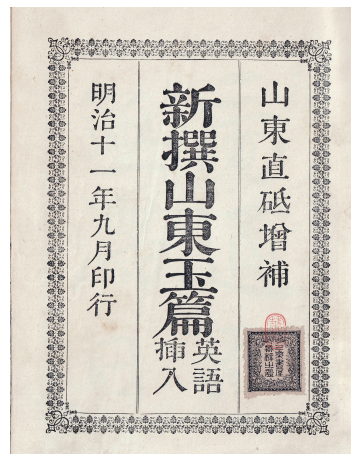 山東直砥增補
新撰山東玉篇
英語
插入
明治十一年九月印行